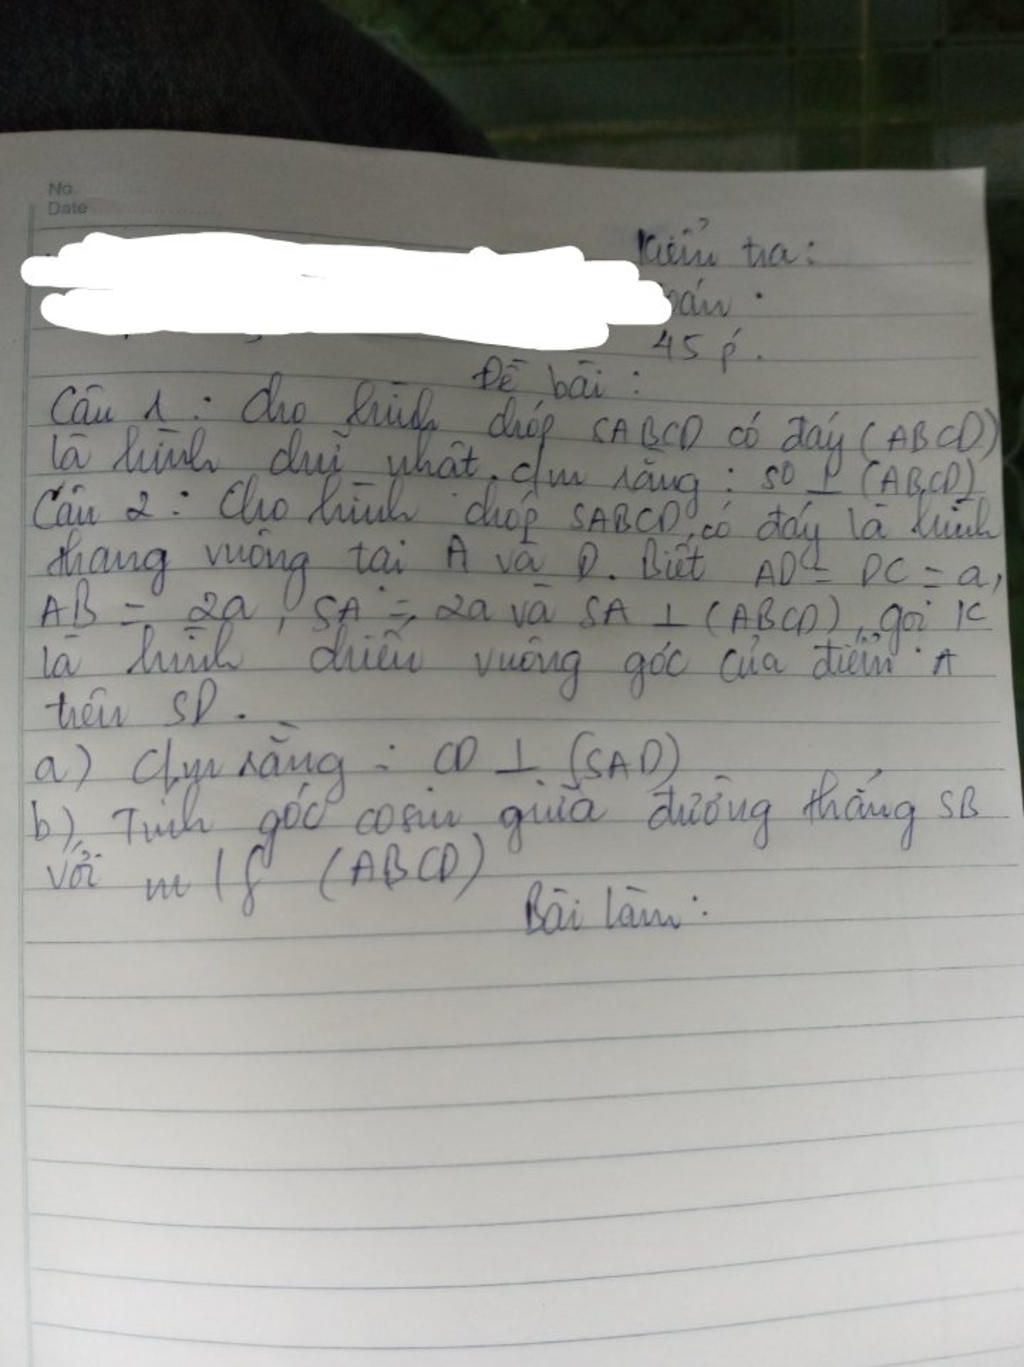 No.
Date
Kiểm tra:
45 p'.
Đề bài:
Câu 1: Cho hình chóp SABCD có đáy (ABCD)
là hình chữ nhật. Cm rằng: SO ⊥ (ABCD)
Câu 2: Cho hình chóp SABCD, có đáy là hình
thang vuông tại A và D. Biết AD = DC = a,
AB = 2a, SA = 2a và SA ⊥ (ABCD), gọi K
là hình chiếu vuông góc của điểm A
trên SD.
a) Cm rằng: CD ⊥ (SAD)
b) Tính góc cosin giữa đường thẳng SB
với m/f (ABCD)
Bài làm: